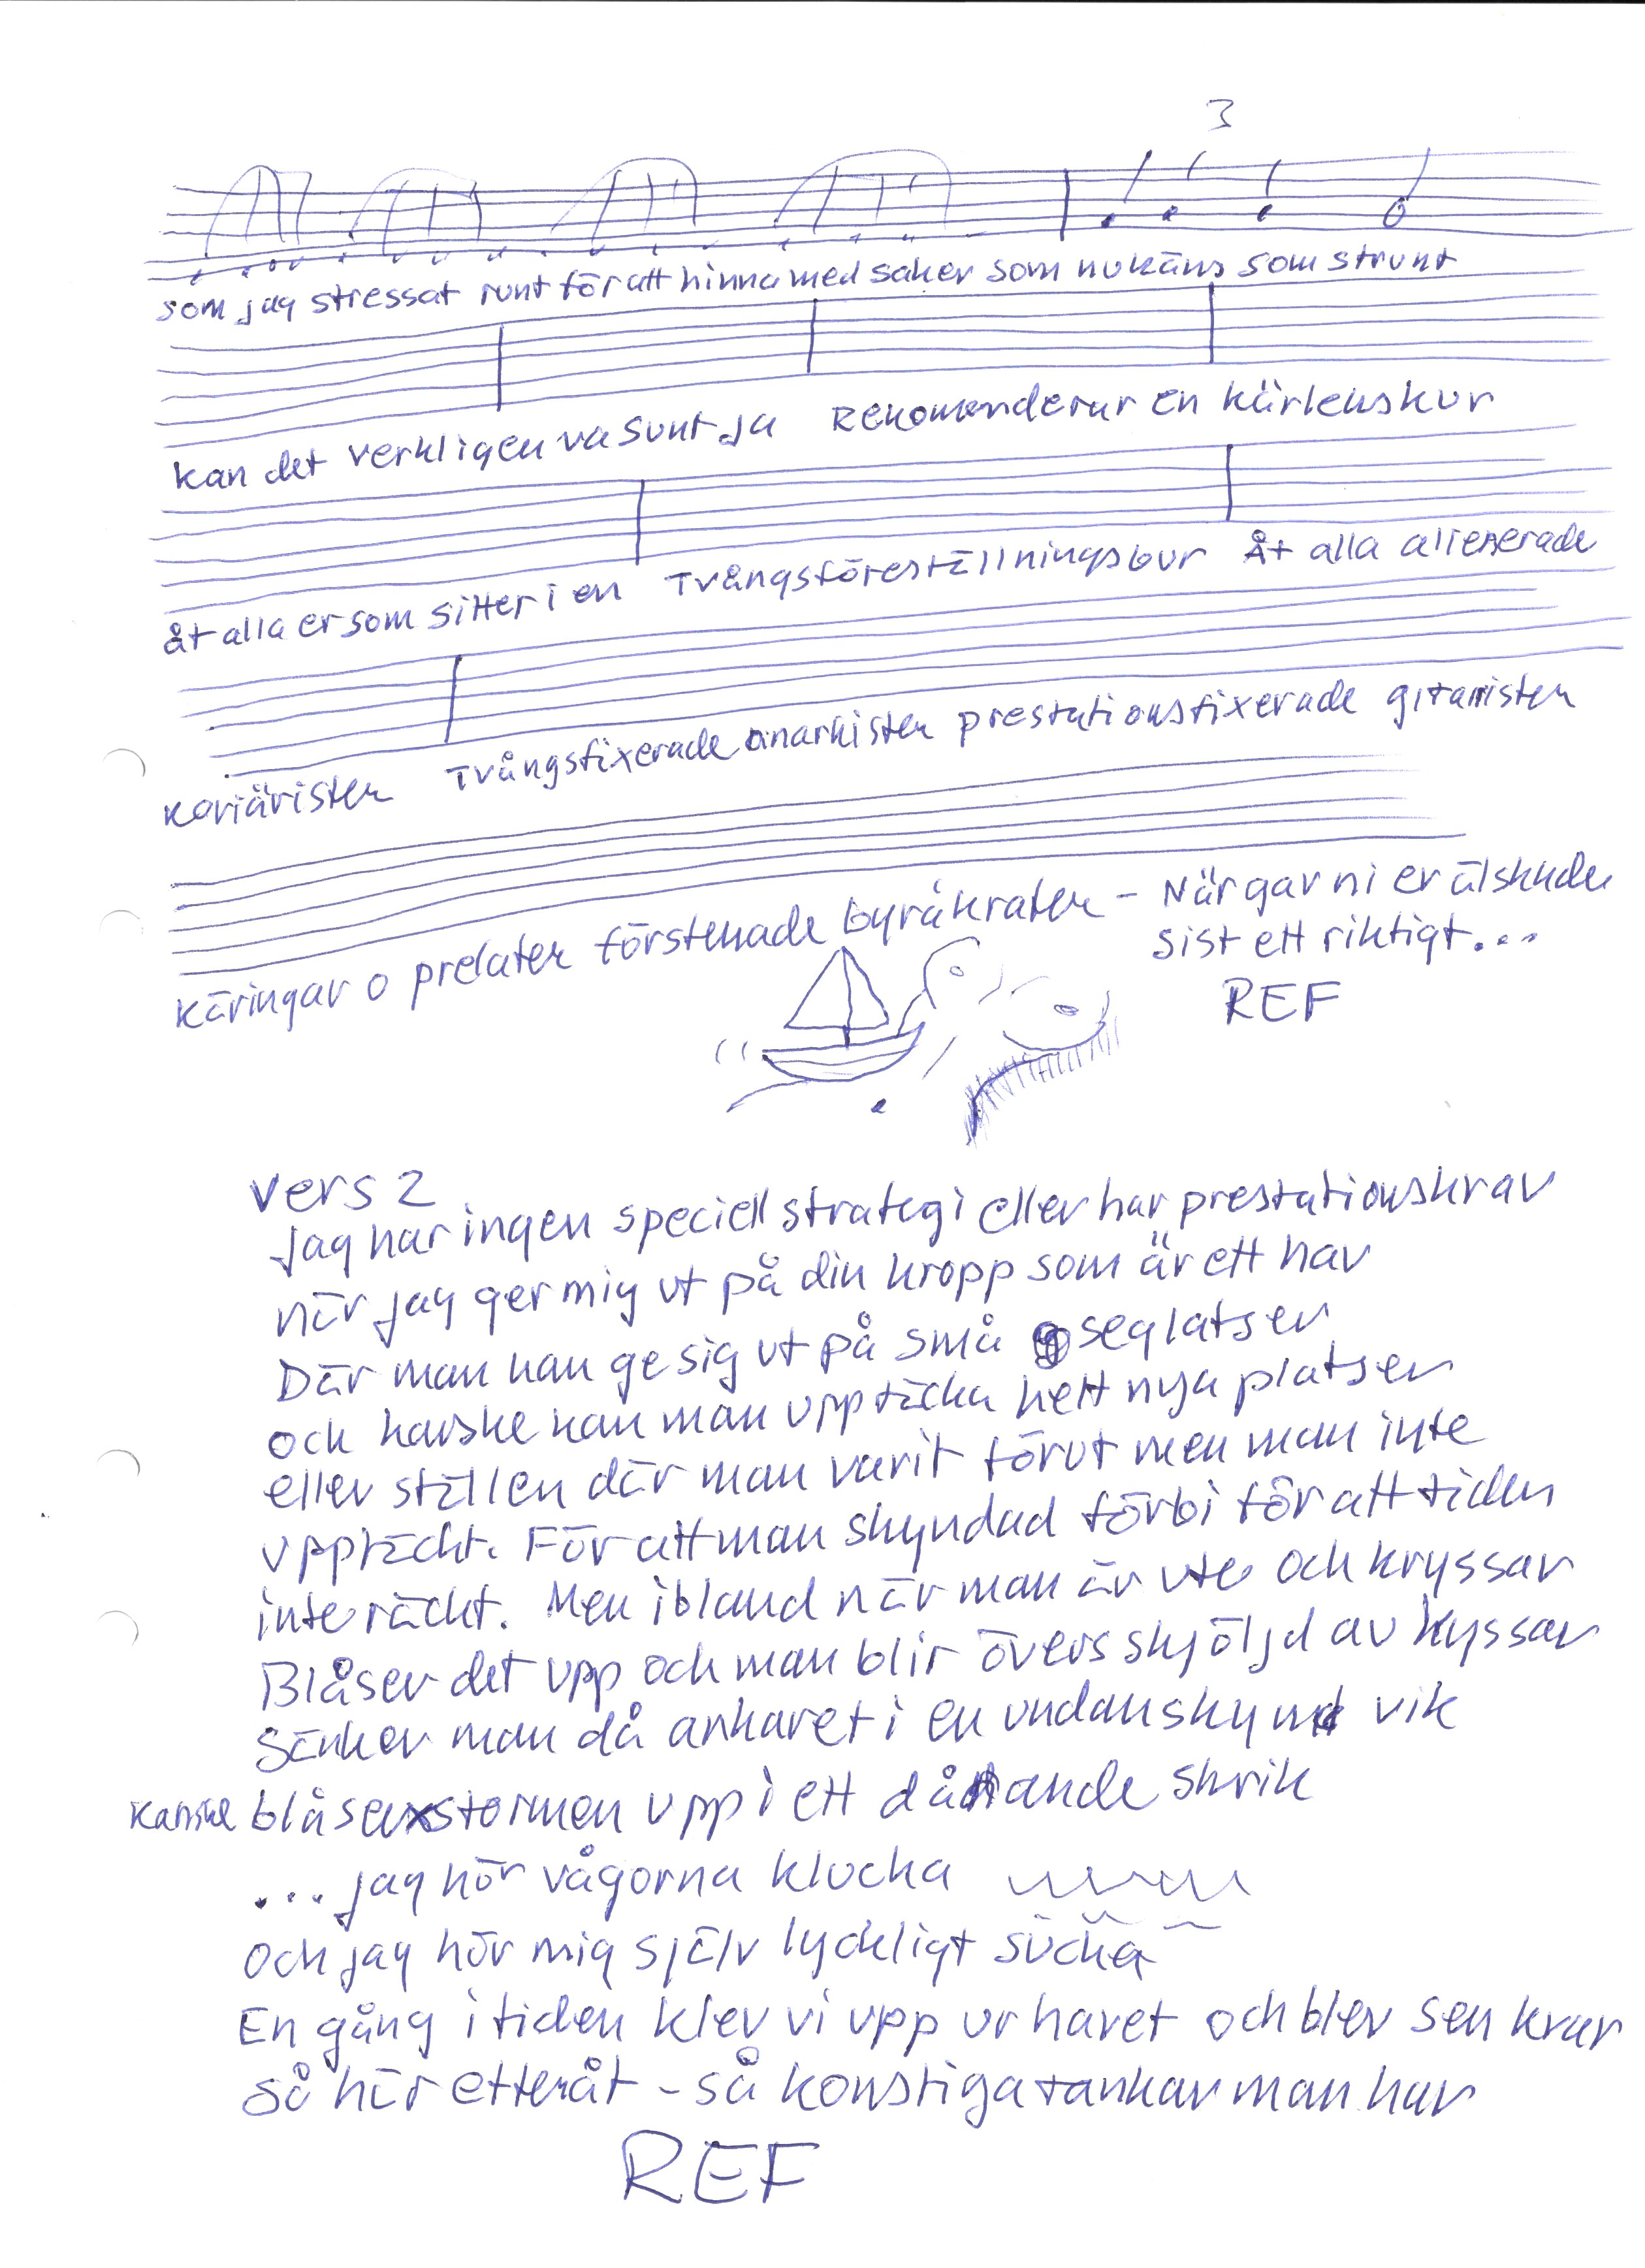 3
som jag stressat runt för att hinna med saker som nu käns som strunt
kan det verkligen va sunt ja Rekomenderar en kärlekskur
åt alla er som sitter i en Tvångsföreställningsbur Åt alla alienerade
karriärister Tvångsfixerade anarkister prestationsfixerade gitarrister
Käringar o prelater förstenade byråkrater – När gav ni er älskade
sist ett riktigt...
REF
Vers 2
Jag har ingen speciell strategi eller har prestationskrav
när jag ger mig ut på din kropp som är ett hav
Där man kan ge sig ut på små seglatser
och kanske kan man upptäcka helt nya platser
eller ställen där man varit förut men man inte
upptäckt. För att man skyndad förbi för att tiden
inte räckt. Men ibland när man är ute och kryssar
Blåser det upp och man blir översskjöljd av kyssar
Sänker man då ankaret i en undanskymd vik
Kanske blåser stormen upp i ett dånande skrik
... jag hör vågorna klucka
och jag hör mig själv lyckligt sucka
En gång i tiden klev vi upp ur havet och blev sen kvar
så här efteråt – så konstiga tankar man har
REF